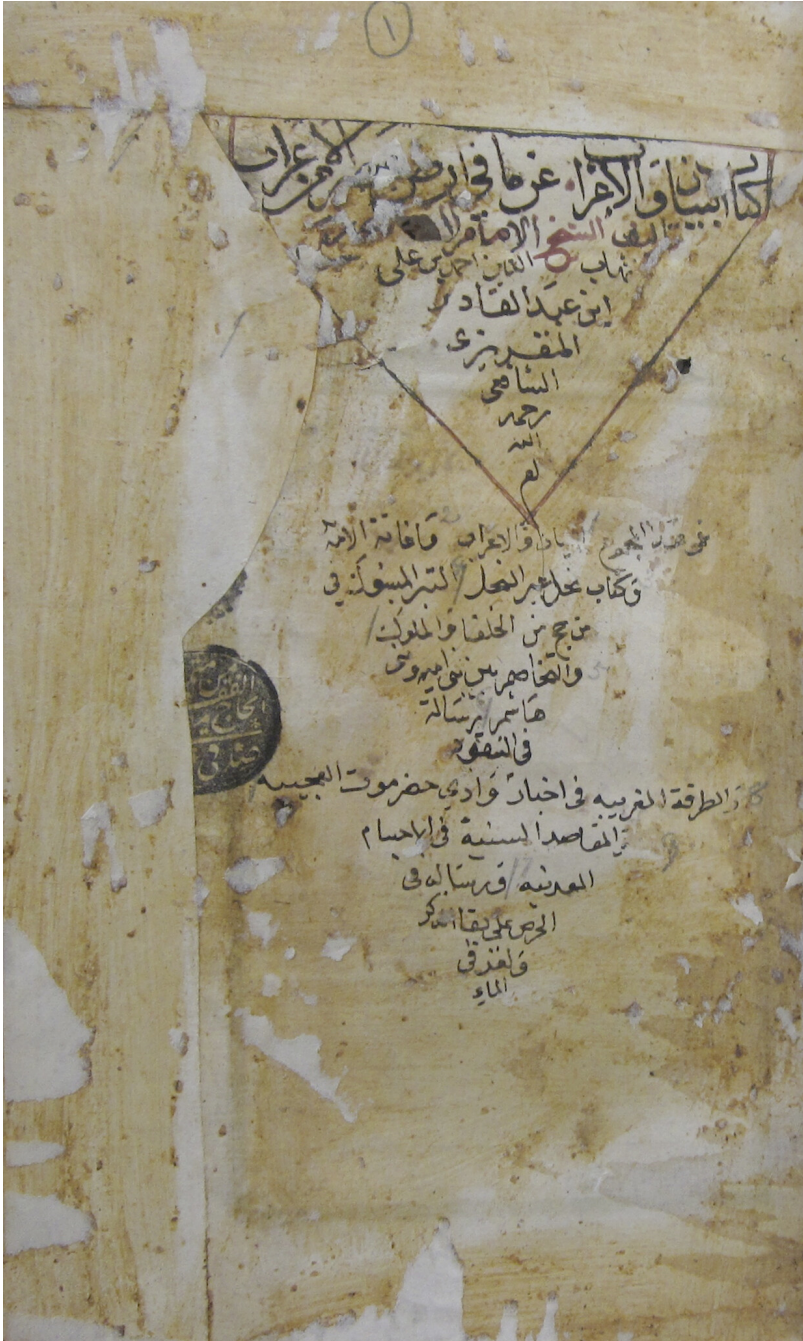 ١
كتاب البيان والإعراب عن ما في ارض مصر من الاعراب
تاليف الشيخ الامام
شهاب الدين احمد بن علي
ابن عبد القادر
المقريزي
الشافعي
رحمه
الله
تع
في هذا المجموع البيان والاعراب واغاثة الامة
وكتاب نحل عبر النحل التبر المسبوك في
من حج من الخلفا والملوك
والتخاصم بين بني اميه وبني
هاشم رسالة
في النقود
والطرفة الغريبه في اخبار وادي حضرموت العجيبه
والمقاصد السنية في الاجسام
المعدنيه ورسالة في
الحرص على بقا الذكر
ولغز في
الماء